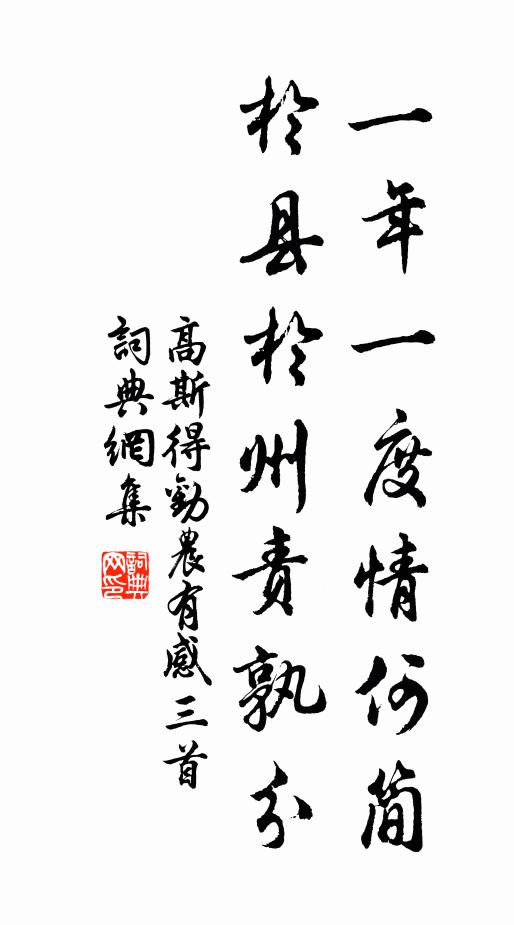 一年一度情何简
於县於州责孰分
高斯得勸農有感三首
詞典網集
詞典网印